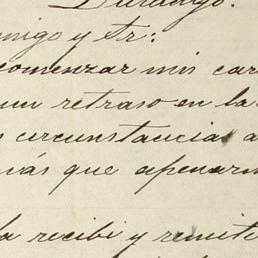 Durango.
migo y Sr:
comenzar mis car
un retraso en la
circunstancia a
más que apenarm
la recibi y remite